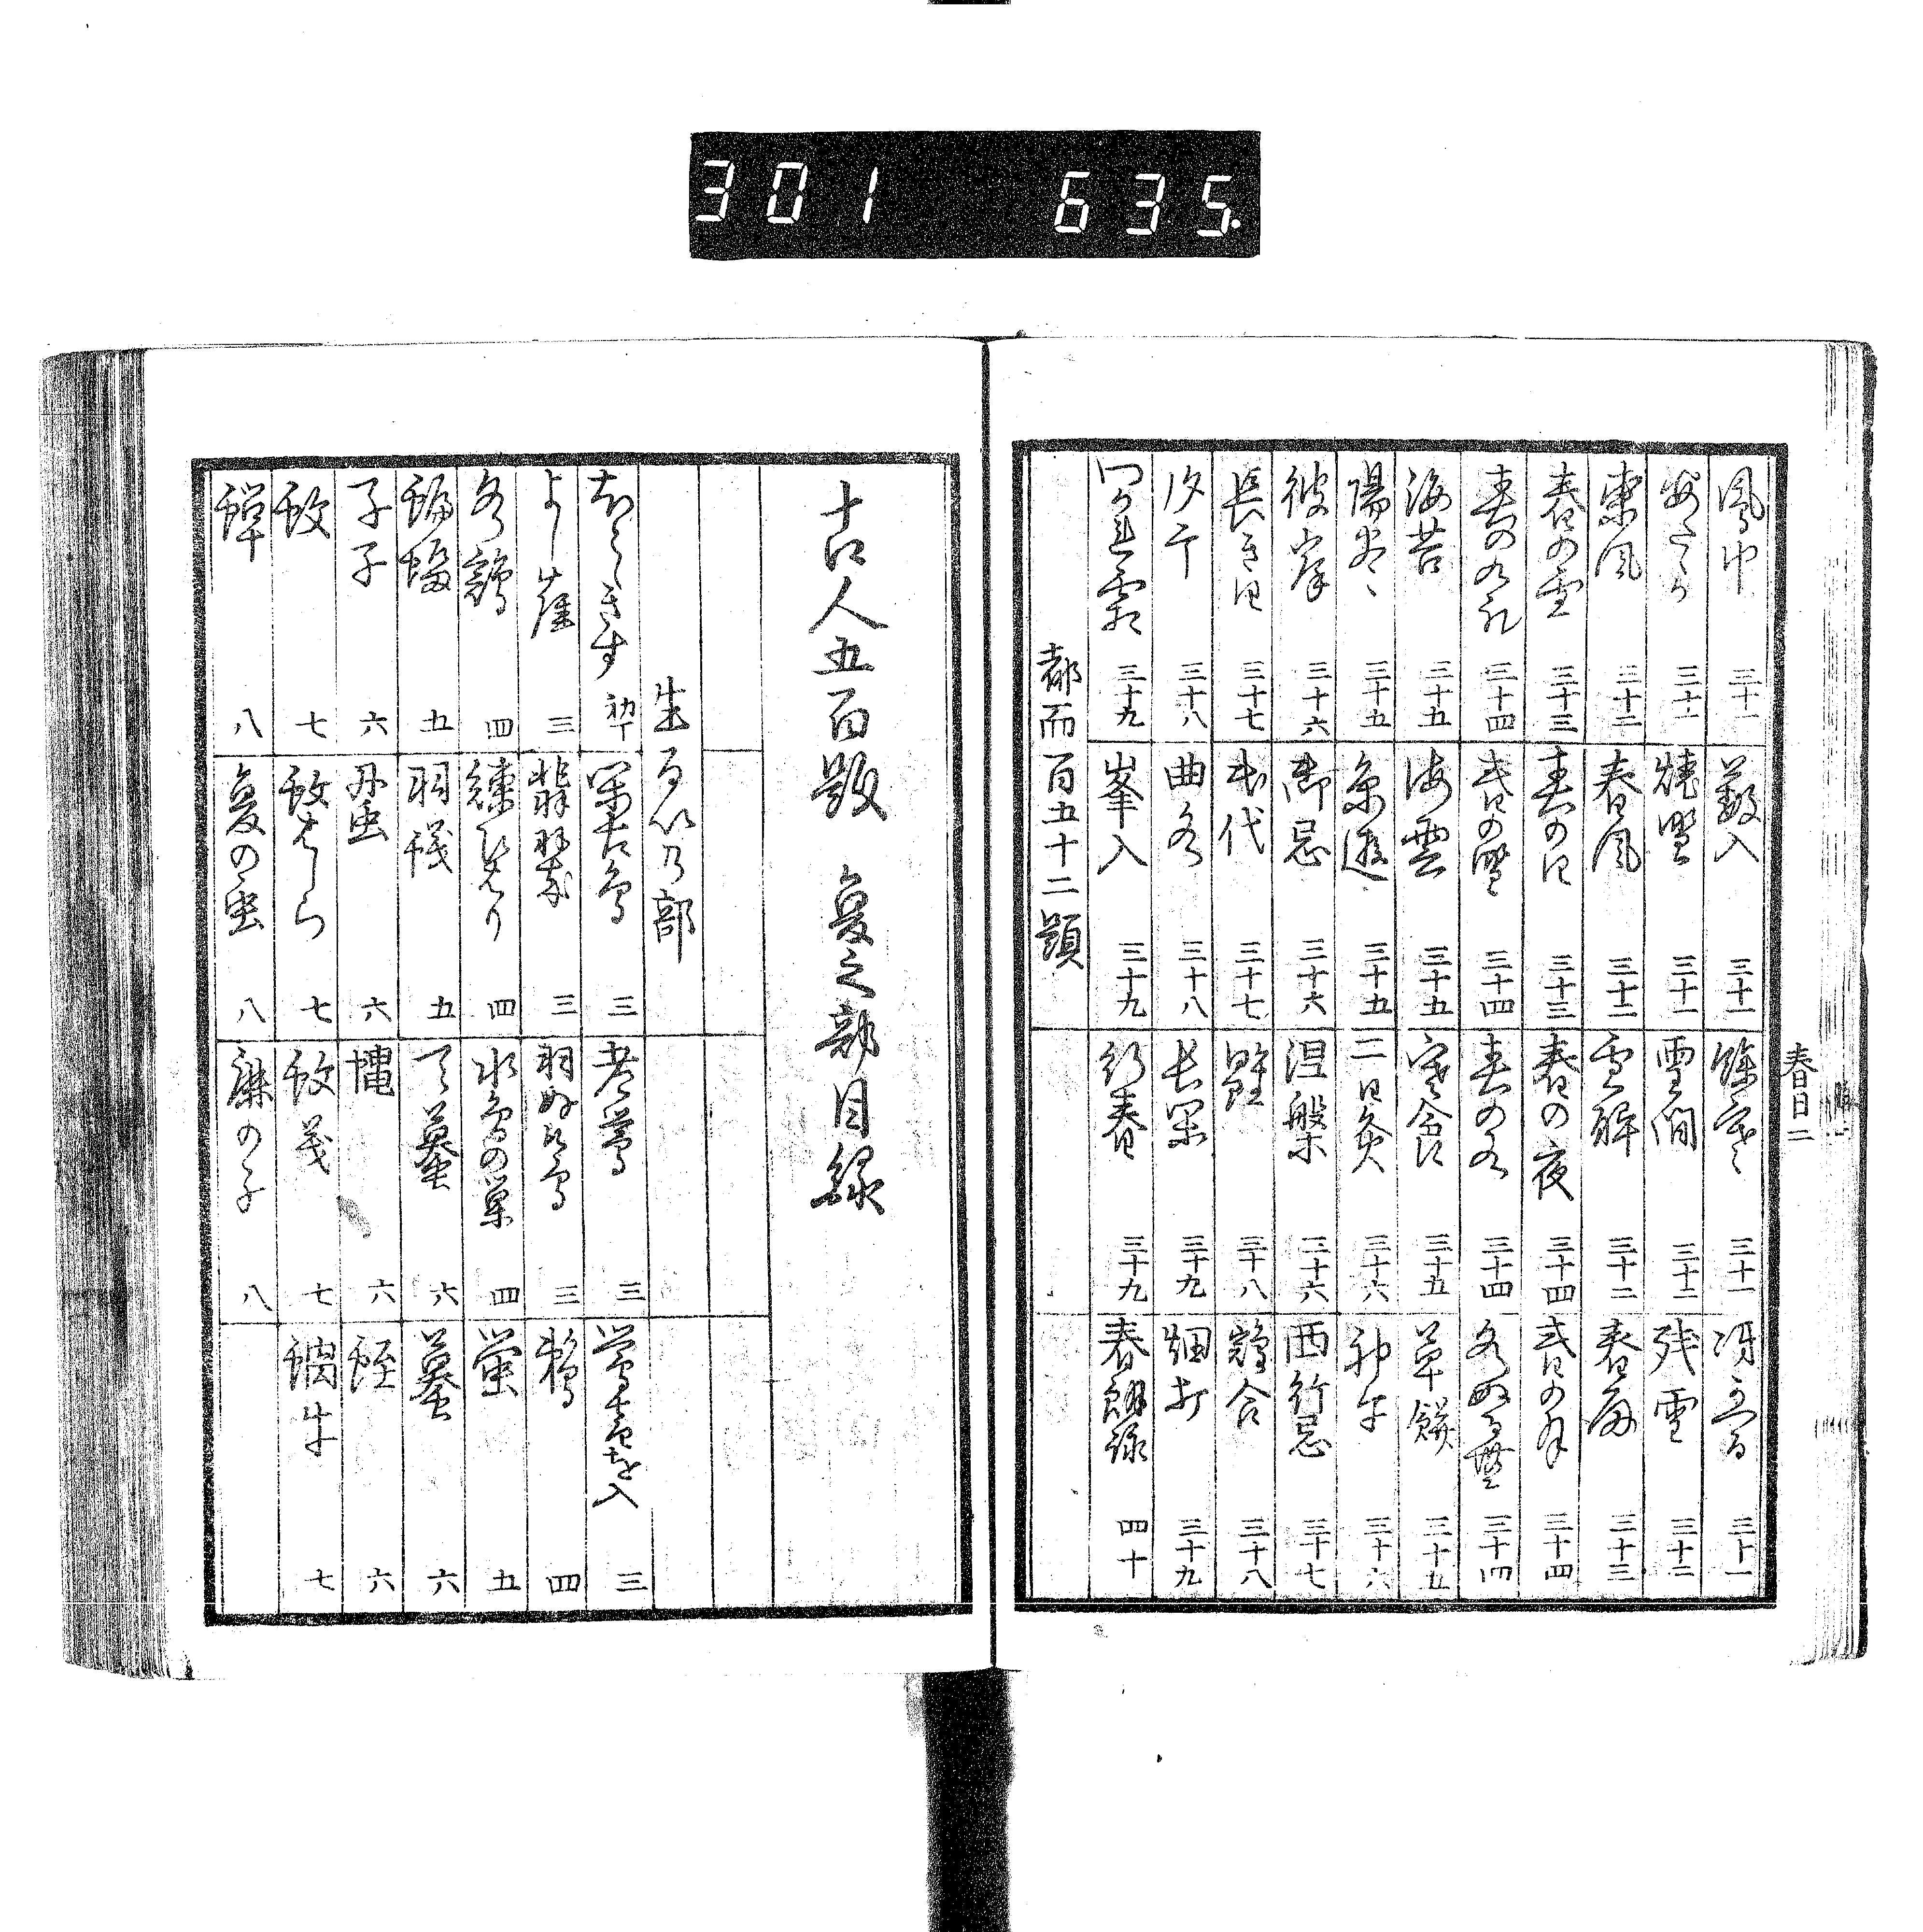 301 635.
春目二
凧巾 三十一
藪入 三十一
餘寒 三十一
冴かへる 三十一
山焼 三十一
焼野 三十一
雪間 三十二
残雪 三十二
東風 三十二
春風 三十二
雪解 三十二
春雨 三十三
春の雪 三十三
春の日 三十三
春の夜 三十四
春の月 三十四
春の水 三十四
春の野 三十四
三十四
三十四
海苔 三十五
海雲 三十五
寒食 三十五
草餅 三十五
陽炎 三十五
糸遊 三十五
二日灸 三十六
三十六
彼岸 三十六
御忌 三十六
涅槃 三十六
西行忌 三十七
長き日 三十七
苗代 三十七
三十八
鶏合 三十八
汐干 三十八
曲水 三十八
長閑 三十九
畑打 三十九
わかれ霜 三十九
峯入 三十九
行春 三十九
春雑録 四十
都而百五十二題
古人五百題 夏之部目録
生るいの部
ほとゝきす 初丁
閑古鳥 三
老鶯 三
鶯音を入 三
よし雀 三
翡翠 三
羽ぬけ鳥 三
鵜 四
水鶏 四
練雲雀 四
水鳥の巣 四
蛍 五
蝙蝠 五
羽蟻 五
六
蟇 六
孑孑 六
毛虫 六
蠅 六
蛭 六
蚊 七
蚊はしら 七
蚊 七
蝸牛 七
蝉 八
夏の虫 八
鹿の子 八